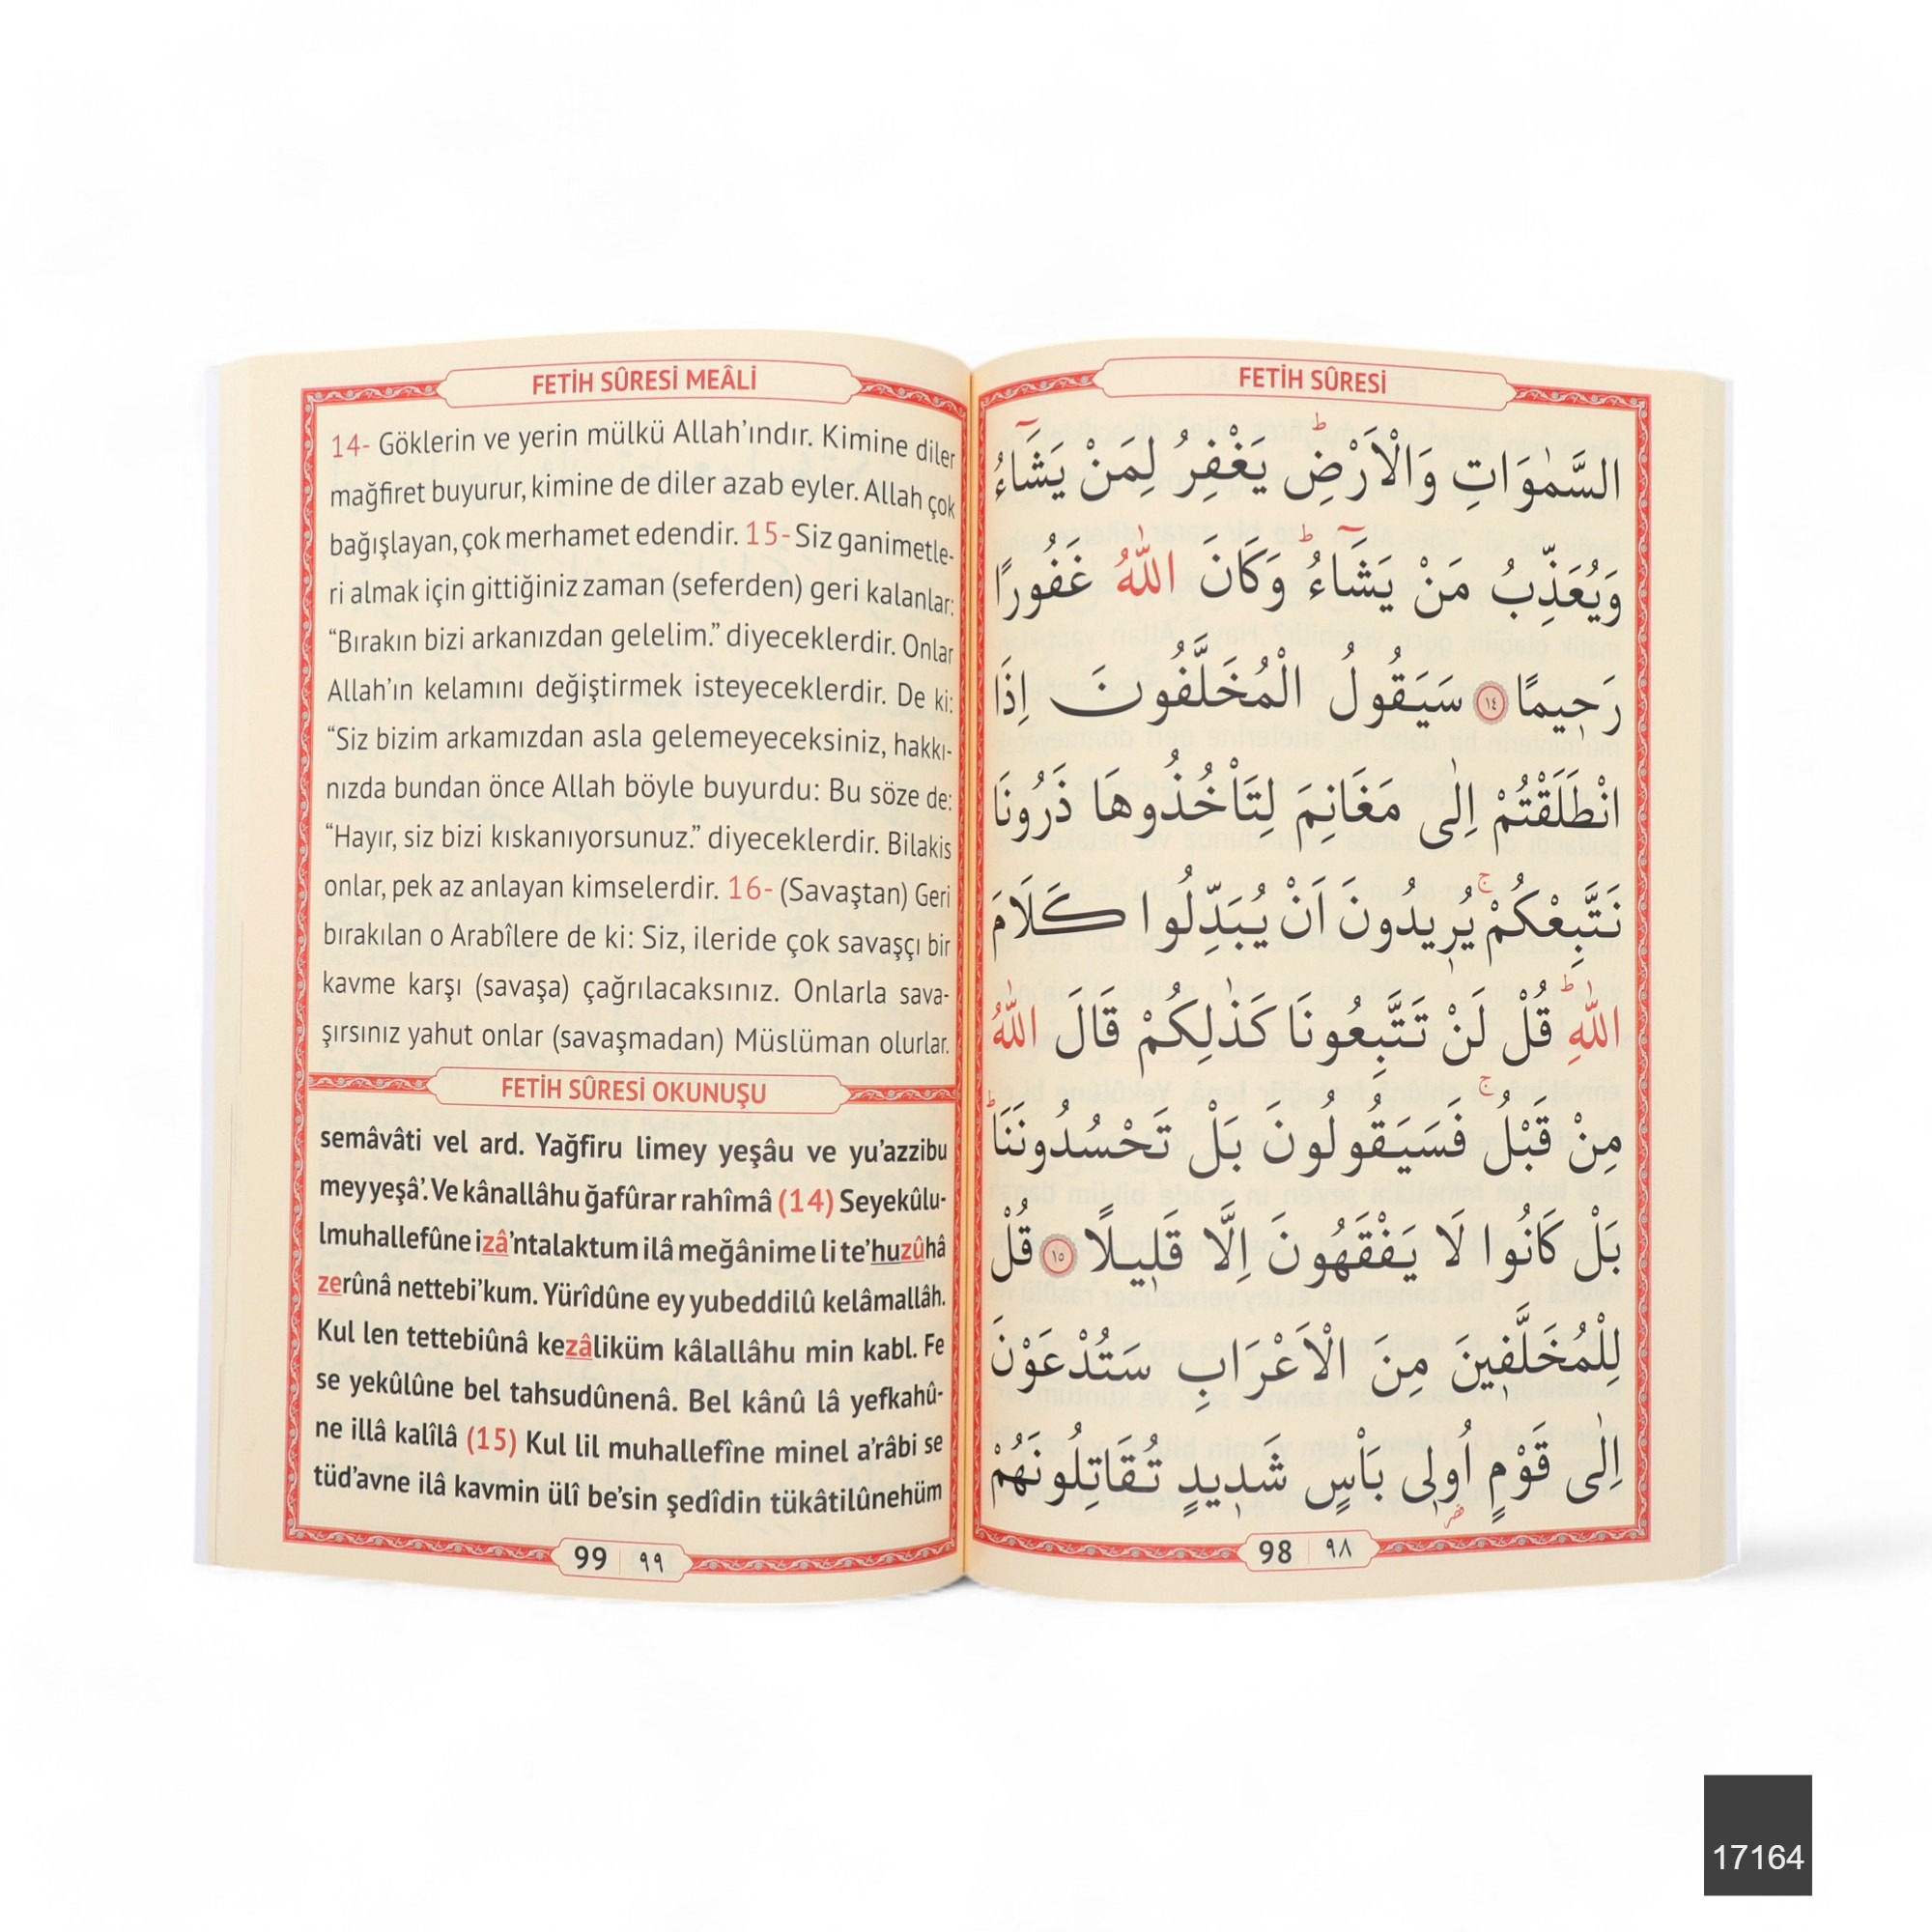 FETİH SÛRESİ
السَّمٰوَاتِ وَالْاَرْضِۜ يَغْفِرُ لِمَنْ يَشَٓاءُ
وَيُعَذِّبُ مَنْ يَشَٓاءُۜ وَكَانَ اللّٰهُ غَفُورًا
رَح۪يمًا ١٤ سَيَقُولُ الْمُخَلَّفُونَ اِذَا
انْطَلَقْتُمْ اِلٰى مَغَانِمَ لِتَأْخُذُوهَا ذَرُونَا
نَتَّبِعْكُمْۚ يُر۪يدُونَ اَنْ يُبَدِّلُوا كَلَامَ
اللّٰهِۜ قُلْ لَنْ تَتَّبِعُونَا كَذٰلِكُمْ قَالَ اللّٰهُ
مِنْ قَبْلُۚ فَسَيَقُولُونَ بَلْ تَحْسُدُونَنَاۜ
بَلْ كَانُوا لَا يَفْقَهُونَ اِلَّا قَل۪يلًا ١٥ قُلْ
لِلْمُخَلَّف۪ينَ مِنَ الْاَعْرَابِ سَتُدْعَوْنَ
اِلٰى قَوْمٍ اُو۬ل۪ى بَأْسٍ شَد۪يدٍ تُقَاتِلُونَهُمْ
98 ٩٨
FETİH SÛRESİ MEÂLİ
14- Göklerin ve yerin mülkü Allah’ındır. Kimine diler
mağfiret buyurur, kimine de diler azab eyler. Allah çok
bağışlayan, çok merhamet edendir. 15- Siz ganimetle-
ri almak için gittiğiniz zaman (seferden) geri kalanlar:
“Bırakın bizi arkanızdan gelelim.” diyeceklerdir. Onlar
Allah’ın kelamını değiştirmek isteyeceklerdir. De ki:
“Siz bizim arkamızdan asla gelemeyeceksiniz, hakkı-
nızda bundan önce Allah böyle buyurdu: Bu söze de:
“Hayır, siz bizi kıskanıyorsunuz.” diyeceklerdir. Bilakis
onlar, pek az anlayan kimselerdir. 16- (Savaştan) Geri
bırakılan o Arabîlere de ki: Siz, ileride çok savaşçı bir
kavme karşı (savaşa) çağrılacaksınız. Onlarla sava-
şırsınız yahut onlar (savaşmadan) Müslüman olurlar.
FETİH SÛRESİ OKUNUŞU
semâvâti vel ard. Yağfiru limey yeşâu ve yu’azzibu
mey yeşâ’. Ve kânallâhu ğafûrar rahîmâ (14) Seyekûlu-
lmuhallefûne izâ’ntalaktum ilâ meğânime li te’huzûhâ
zerûnâ nettebi’kum. Yürîdûne ey yubeddilû kelâmallâh.
Kul len tettebiûnâ kezâliküm kâlallâhu min kabl. Fe
se yekûlûne bel tahsudûnenâ. Bel kânû lâ yefkahû-
ne illâ kalîlâ (15) Kul lil muhallefîne minel a’râbi se
tüd’avne ilâ kavmin ülî be’sin şedîdin tükâtilûnehüm
99 ٩٩
17164